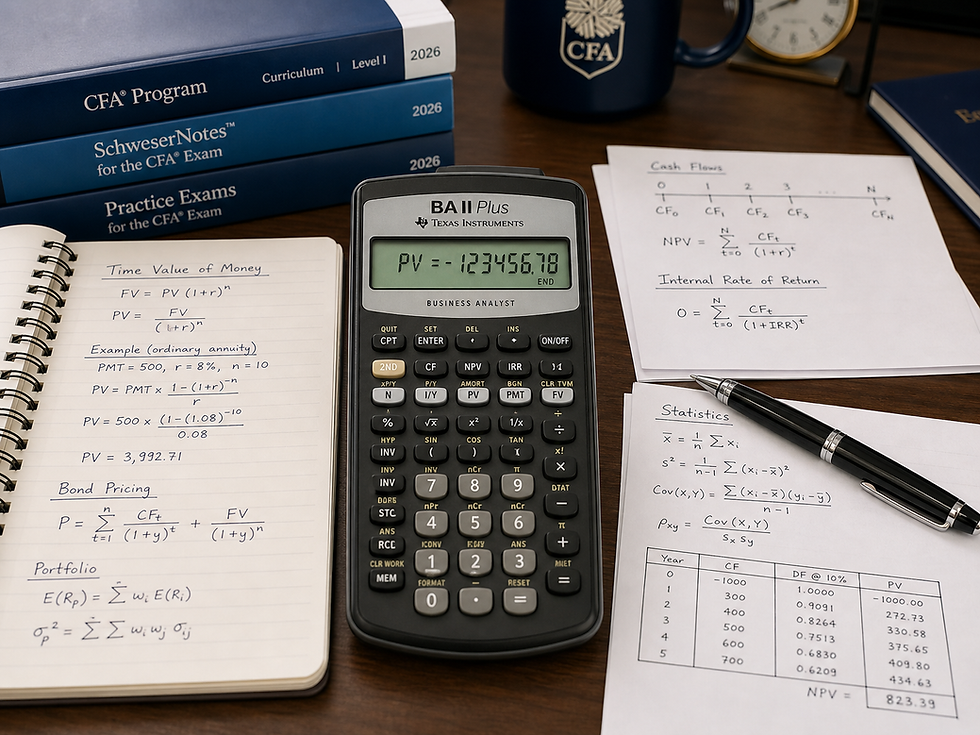 CFA® Program Curriculum | Level I 2026
SchweserNotes™
for the CFA® Exam 2026
Practice Exams
for the CFA® Exam 2026
CFA
Time Value of Money
FV = PV (1+r)ⁿ
PV = FV / (1+r)ⁿ
Example (ordinary annuity)
PMT = 500, r = 8%, n = 10
PV = PMT × 1-(1+r)⁻ⁿ / r
PV = 500 × (1-(1.08)⁻¹⁰) / 0.08
PV = 3,992.71
Bond Pricing
P = ∑ⁿₜ₌₁ CFₜ / (1+y)ᵗ + FV / (1+y)ⁿ
Portfolio
E(Rₚ) = ∑ wᵢ E(Rᵢ)
σₚ² = ∑ ∑ wᵢ wⱼ σᵢⱼ
BA II Plus
TEXAS INSTRUMENTS
PV =-123456.78
END
BUSINESS ANALYST
QUIT SET DEL INS
CPT ENTER ON/OFF
2ND CF NPV IRR
xP/Y P/Y AMORT BGN CLR TVM
N I/Y PV PMT FV
÷
% √x x² 1/x ÷
HYP SIN COS TAN x!
INV ( ) ×
INV nCr π
INV 7 8 9
DTAT
−
nPr nCr nCr π
STC 4 5 6
ANS ANS
RCE +
CLR WORK
MEM 1 2 3 =
FORMAT - RESET
0 . =
Cash Flows
0 1 2 3 ... N
CF₀ CF₁ CF₂ CF₃ CFₙ
NPV = ∑ᴺₜ₌₀ CFₜ / (1+r)ᵗ
Internal Rate of Return
0 = ∑ᴺₜ₌₀ CFₜ / (1+IRR)ᵗ
Statistics
x̄ = 1/n ∑ xᵢ
s² = 1/n-1 ∑ (xᵢ-x̄)²
Cov(X,Y) = ∑ (xᵢ-x̄)(yᵢ-ȳ) / n-1
ρxy = Cov(X,Y) / sₓ sᵧ
Year CF DF @ 10% PV
0 -1000 1.0000 -1000.00
1 300 0.9091 272.73
2 400 0.8264 330.58
3 500 0.7513 375.65
4 600 0.6830 409.80
5 700 0.6209 434.63
NPV = 823.39